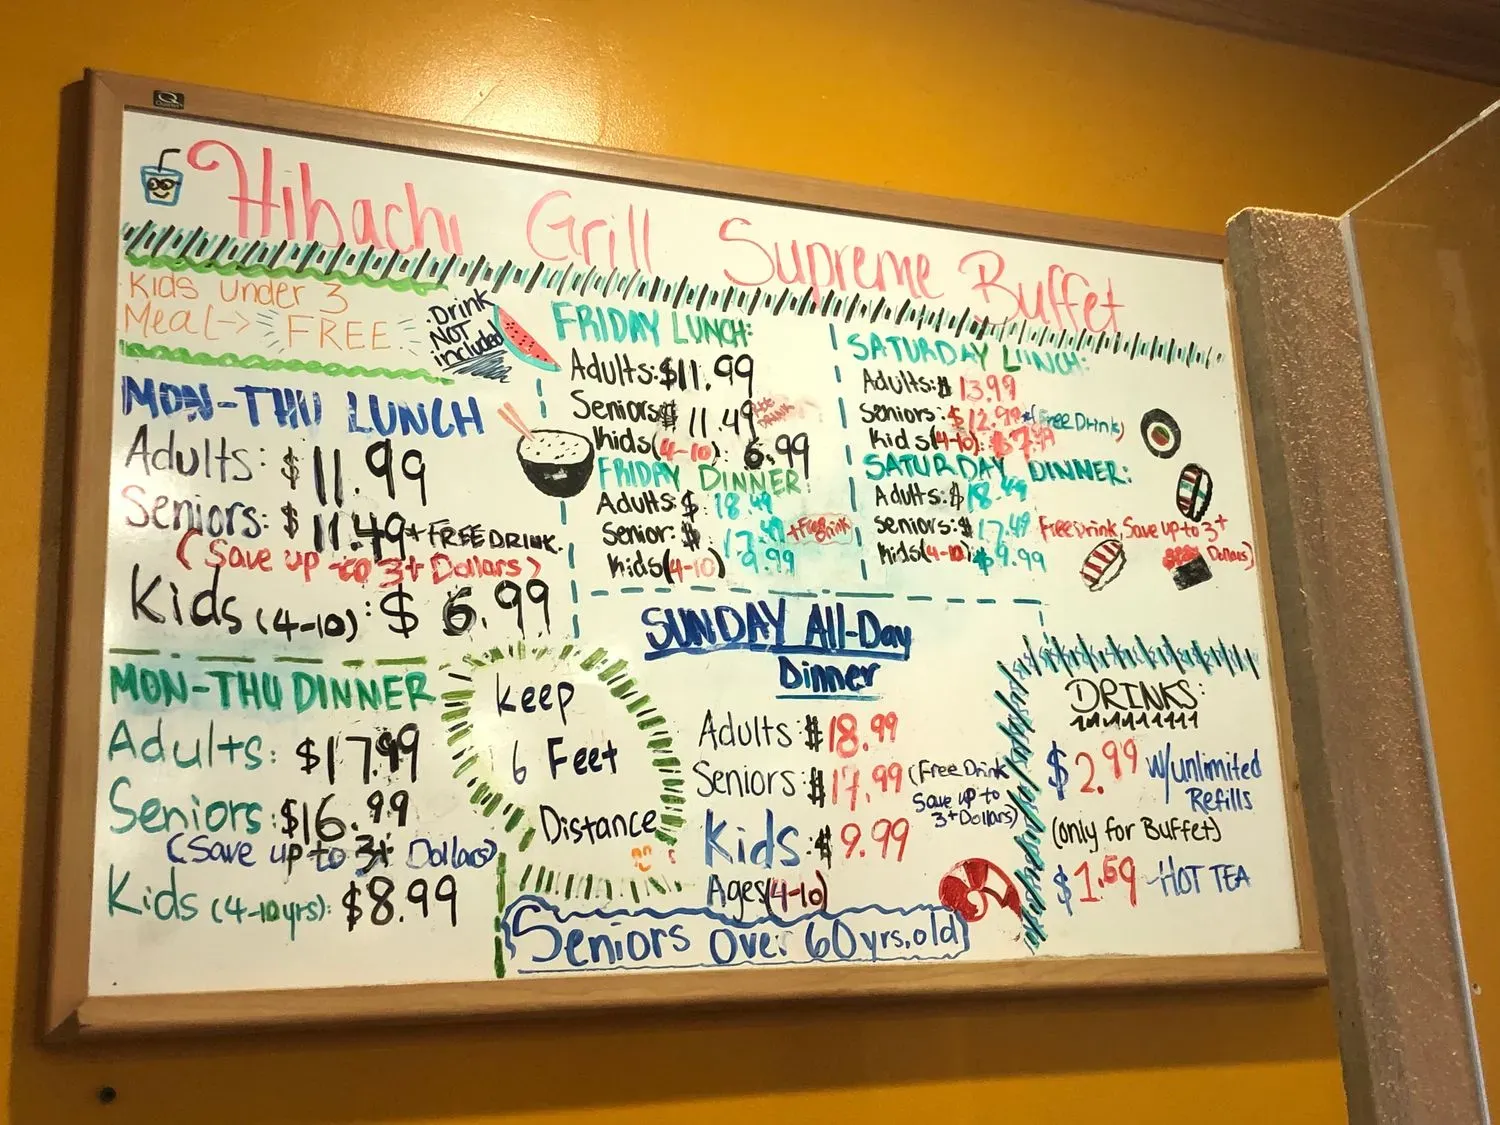 Hibachi Grill Supreme Buffet
Kids under 3
Meal-> FREE
Drink
NOT
included
MON-THU LUNCH
Adults: $11.99
Seniors: $11.49 + FREE DRINK.
(Save up to 3+ Dollars)
Kids (4-10): $6.99
MON-THU DINNER
Adults: $17.99
Seniors: $16.99
(Save up to 3+ Dollars)
Kids (4-10yrs): $8.99
FRIDAY LUNCH:
Adults: $11.99
Seniors $11.49
Kids (4-10): 6.99
FRIDAY DINNER:
Adults: $18.49
Senior: $17.49 +Free Drink
Kids (4-10) 9.99
SATURDAY LUNCH:
Adults: $13.99
Seniors: $12.99 (Free Drink)
Kids (4-10):
SATURDAY DINNER:
Adults: $18.49
Seniors: $17.49 Free Drink, Save up to 3+
Dollars)
Kids (4-10) $9.99
Keep
6 Feet
Distance
SUNDAY All-Day
Dinner
Adults $18.99
Seniors $17.99 (Free Drink
Save up to
3+ Dollars)
Kids $9.99
Ages (4-10)
Seniors Over 60 yrs. old
DRINKS:
$2.99 w/unlimited
Refills
(only for Buffet)
$1.59 -HOT TEA